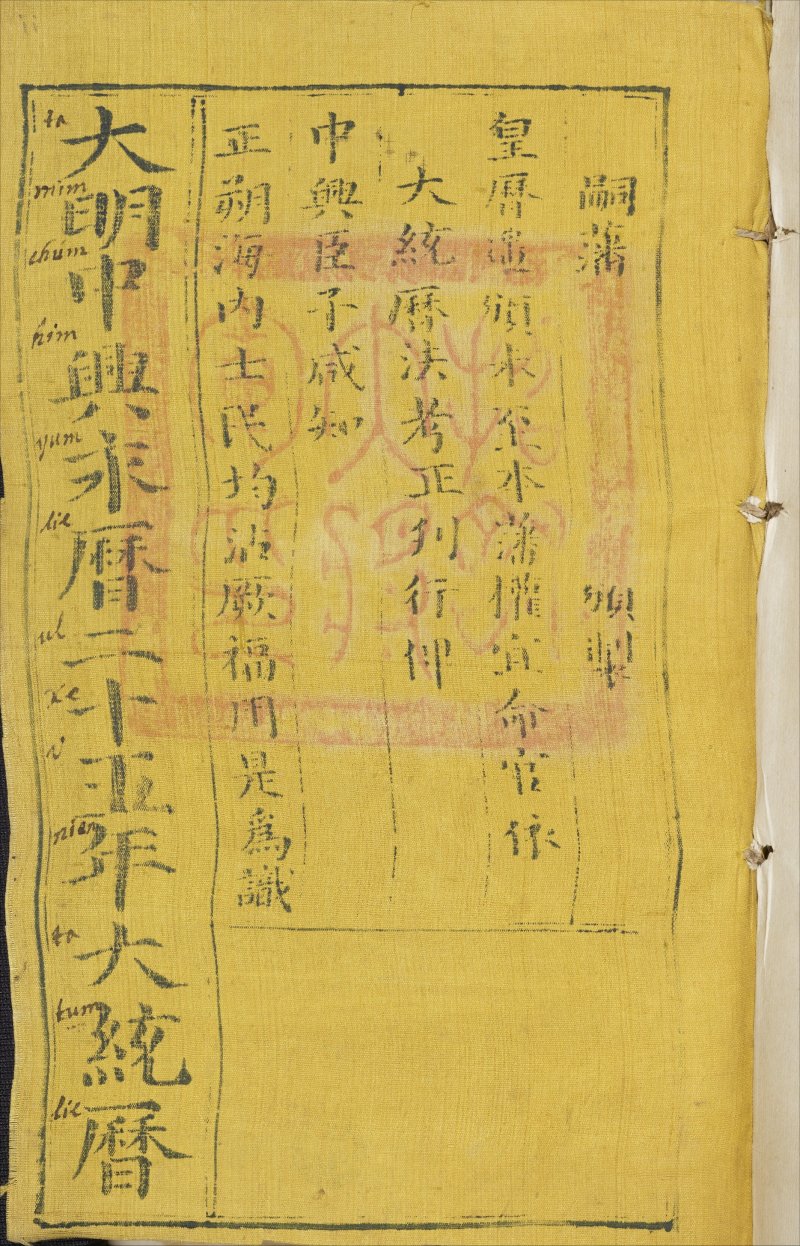 嗣藩　頒製
皇曆遙頒未至本藩懽宜命官依
大統曆法考正刊行俾
中興臣子咸知
正朔海內士民均沾厥福用是爲識
大明中興永曆二十五年大統曆
ta
mim
chúm
him
yum
lie
ul
xe
v
nien
ta
tum
lie